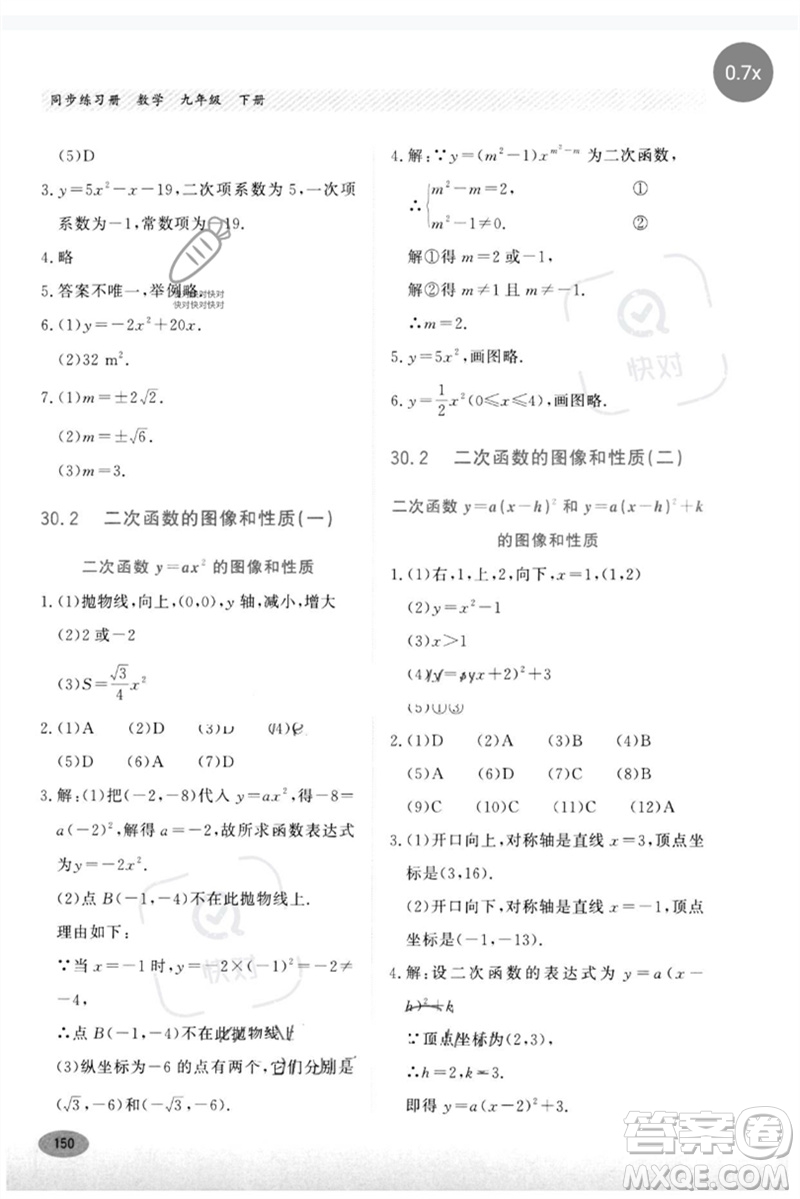 0.7x
同步练习册 数学 九年级 下册
(5)D
3. y=5x²-x-19,二次项系数为 5,一次项
系数为-1,常数项为-19.
4. 略
5. 答案不唯一,举例略.
快对快对快对
6. (1)y=-2x²+20x.
(2)32 m².
7. (1)m=±2√2.
(2)m=±√6.
(3)m=3.
30.2 二次函数的图像和性质(一)
二次函数 y=ax² 的图像和性质
1. (1)抛物线,向上,(0,0),y 轴,减小,增大
(2)2 或-2
(3)S=√3/4 x²
2. (1)A (2)D (3)D (4)C
(5)D (6)A (7)D
3. 解:(1)把(-2,-8)代入 y=ax²,得-8=
a(-2)²,解得 a=-2,故所求函数表达式
为y=-2x².
(2)点 B(-1,-4)不在此抛物线上.
理由如下:
∵当 x=-1 时,y=-2×(-1)²=-2≠
-4,
∴点 B(-1,-4)不在此抛物线上.
(3)纵坐标为-6 的点有两个,它们分别是
(√3,-6)和(-√3,-6).
150
4. 解:∵y=(m²-1)x^(m²-m) 为二次函数,
∴ { m²-m=2, ①
m²-1≠0. ②
解①得 m=2 或-1.
解②得 m≠1 且 m≠-1.
∴m=2.
5. y=5x²,画图略.
6. y=1/2 x²(0≤x≤4),画图略.
快对
30.2 二次函数的图像和性质(二)
二次函数 y=a(x-h)² 和 y=a(x-h)²+k
的图像和性质
1. (1)右,1,上,2,向下,x=1,(1,2)
(2)y=x²-1
(3)x>1
(5)①③
2. (1)D (2)A (3)B (4)B
(5)A (6)D (7)C (8)A
(9)C (10)C (11)C (12)A
3. (1)开口向上,对称轴是直线 x=3,顶点坐
标是(3,16).
(2)开口向下,对称轴是直线 x=-1,顶点
坐标是(-1,-13).
4. 解:设二次函数的表达式为 y=a(x-
h)²+k,
∵顶点坐标为(2,3),
∴h=2,k=3.
即得 y=a(x-2)²+3.
快对
答案圈
MXQE.COM